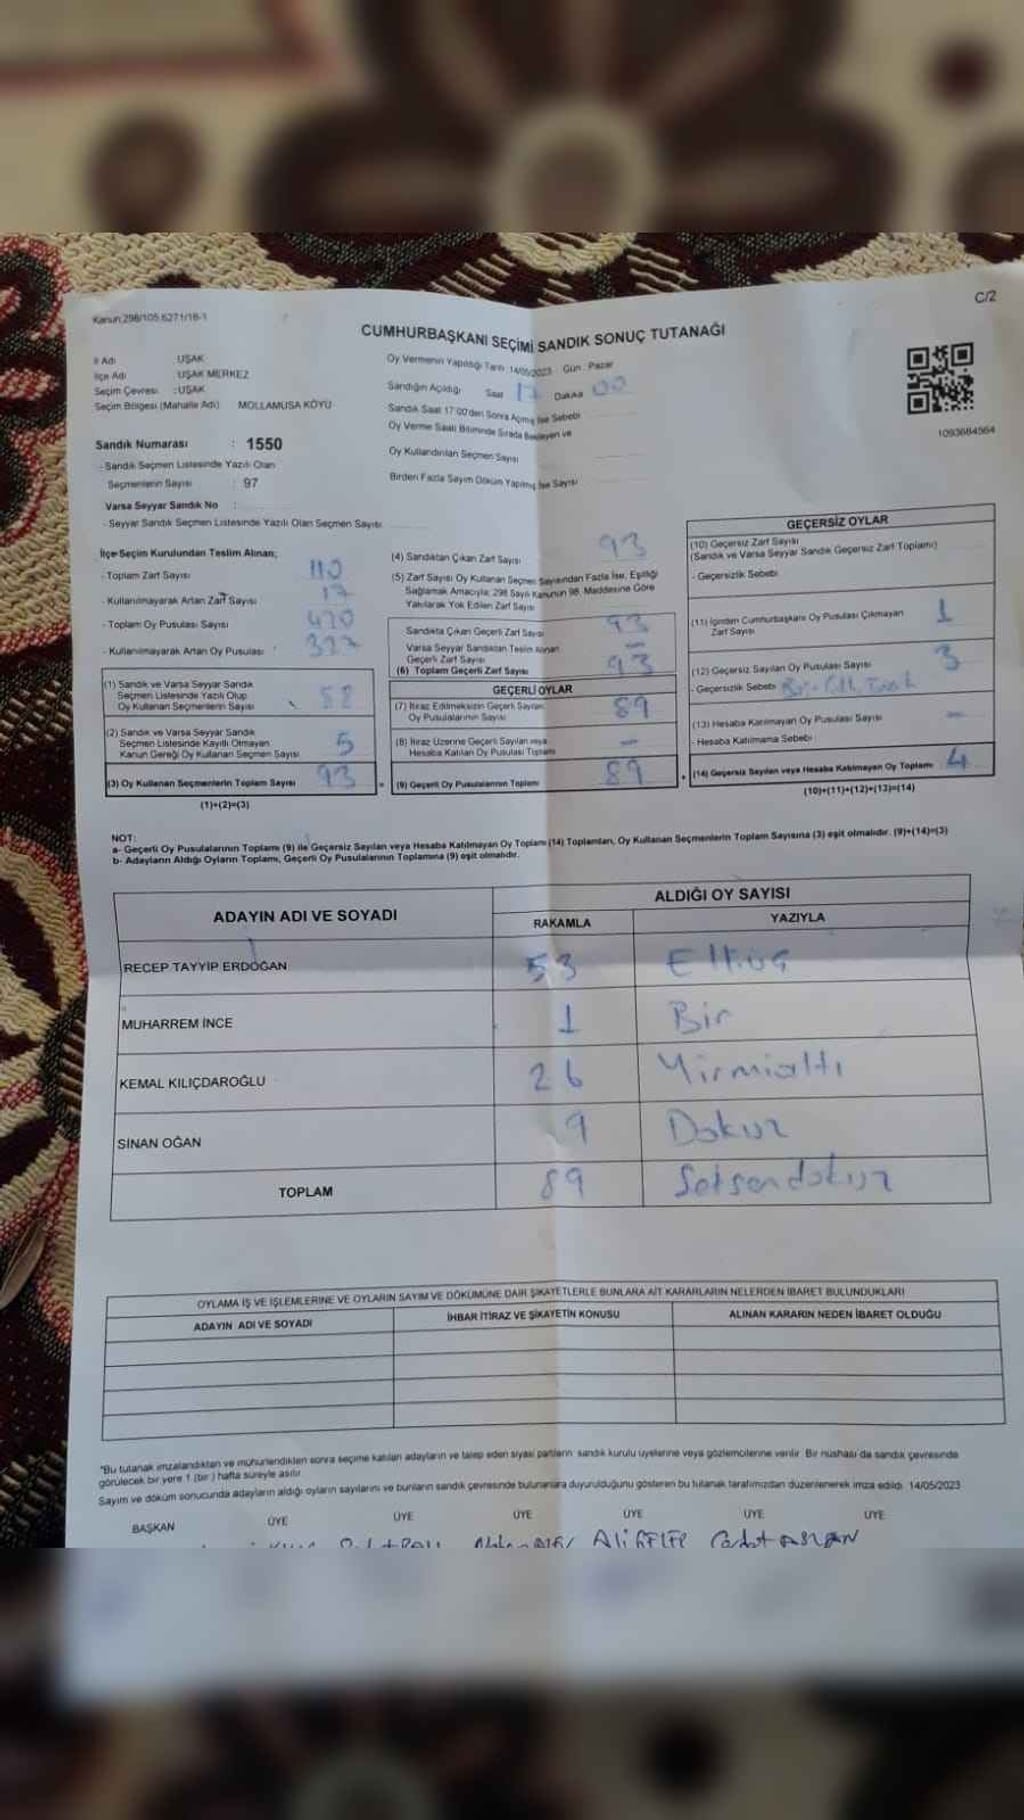 C/2
Kanun:298/105.6271/18-1
CUMHURBAŞKANI SEÇİMİ SANDIK SONUÇ TUTANAĞI
İl Adı : UŞAK
İlçe Adı : UŞAK MERKEZ
Seçim Çevresi : UŞAK
Seçim Bölgesi (Mahalle Adı) MOLLAMUSA KÖYÜ
Sandık Numarası : 1550
- Sandık Seçmen Listesinde Yazılı Olan
Seçmenlerin Sayısı : 97
Varsa Seyyar Sandık No :
- Seyyar Sandık Seçmen Listesinde Yazılı Olan Seçmen Sayısı
Oy Vermenin Yapıldığı Tarih : 14/05/2023 Gün : Pazar
Sandığın Açıldığı Saat 17 Dakika 00
Sandık Saat 17:00'den Sonra Açılmış İse Sebebi
Oy Verme Saati Bitiminde Sırada Bekleyen ve
Oy Kullandırılan Seçmen Sayısı
Birden Fazla Sayım Döküm Yapılmış İse Sayısı
1093684564
İlçe Seçim Kurulundan Teslim Alınan;
- Toplam Zarf Sayısı 110
- Kullanılmayarak Artan Zarf Sayısı 17
- Toplam Oy Pusulası Sayısı
- Kullanılmayarak Artan Oy Pusulası :
(1) Sandık ve Varsa Seyyar Sandık
Seçmen Listesinde Yazılı Olup
Oy Kullanan Seçmenlerin Sayısı
(2) Sandık ve Varsa Seyyar Sandık
Seçmen Listesinde Kayıtlı Olmayan
Kanun Gereği Oy Kullanan Seçmen Sayısı 5
(3) Oy Kullanan Seçmenlerin Toplam Sayısı 93
(1)+(2)=(3)
(4) Sandıktan Çıkan Zarf Sayısı 93
(5) Zarf Sayısı Oy Kullanan Seçmen Sayısından Fazla İse, Eşitliği
Sağlamak Amacıyla; 298 Sayılı Kanunun 98. Maddesine Göre
Yakılarak Yok Edilen Zarf Sayısı
Sandıkta Çıkan Geçerli Zarf Sayısı 93
Varsa Seyyar Sandıktan Teslim Alınan
Geçerli Zarf Sayısı -
(6) Toplam Geçerli Zarf Sayısı 93
GEÇERLİ OYLAR
(7) İtiraz Edilmeksizin Geçerli Sayılan
Oy Pusulalarının Sayısı 89
(8) İtiraz Üzerine Geçerli Sayılan veya
Hesaba Katılan Oy Pusulası Toplamı -
(9) Geçerli Oy Pusulalarının Toplamı 89
GEÇERSİZ OYLAR
(10) Geçersiz Zarf Sayısı
(Sandık ve Varsa Seyyar Sandık Geçersiz Zarf Toplamı)
- Geçersizlik Sebebi
(11) İçinden Cumhurbaşkanı Oy Pusulası Çıkmayan
Zarf Sayısı 1
(12) Geçersiz Sayılan Oy Pusulası Sayısı 3
- Geçersizlik Sebebi
(13) Hesaba Katılmayan Oy Pusulası Sayısı -
- Hesaba Katılmama Sebebi
(14) Geçersiz Sayılan veya Hesaba Katılmayan Oy Toplamı 4
(10)+(11)+(12)+(13)=(14)
NOT:
a- Geçerli Oy Pusulalarının Toplamı (9) ile Geçersiz Sayılan veya Hesaba Katılmayan Oy Toplamı (14) Toplamları, Oy Kullanan Seçmenlerin Toplam Sayısına (3) eşit olmalıdır. (9)+(14)=(3)
b- Adayların Aldığı Oyların Toplamı, Geçerli Oy Pusulalarının Toplamına (9) eşit olmalıdır.
ADAYIN ADI VE SOYADI ALDIĞI OY SAYISI
RAKAMLA YAZIYLA
RECEP TAYYİP ERDOĞAN 53 Elliüç
MUHARREM İNCE 1 Bir
KEMAL KILIÇDAROĞLU 26 Yirmialtı
SİNAN OĞAN 9 Dokuz
TOPLAM 89 Seksendokuz
OYLAMA İŞ VE İŞLEMLERİNE VE OYLARIN SAYIM VE DÖKÜMÜNE DAİR ŞİKAYETLERLE BUNLARA AİT KARARLARIN NELERDEN İBARET BULUNDUKLARI
ADAYIN ADI VE SOYADI İHBAR İTİRAZ VE ŞİKAYETİN KONUSU ALINAN KARARIN NEDEN İBARET OLDUĞU
*Bu tutanak imzalandıktan ve mühürlendikten sonra seçime katılan adayların ve talep eden siyasi partilerin sandık kurulu üyelerine veya gözlemcilerine verilir. Bir nüshası da sandık çevresinde
görülecek bir yere 1 (bir) hafta süreyle asılır.
Sayım ve döküm sonucunda adayların aldığı oyların sayılarını ve bunların sandık çevresinde bulunanlara duyurulduğunu gösteren bu tutanak tarafımızdan düzenlenerek imza edildi. 14/05/2023
BAŞKAN ÜYE ÜYE ÜYE ÜYE ÜYE ÜYE